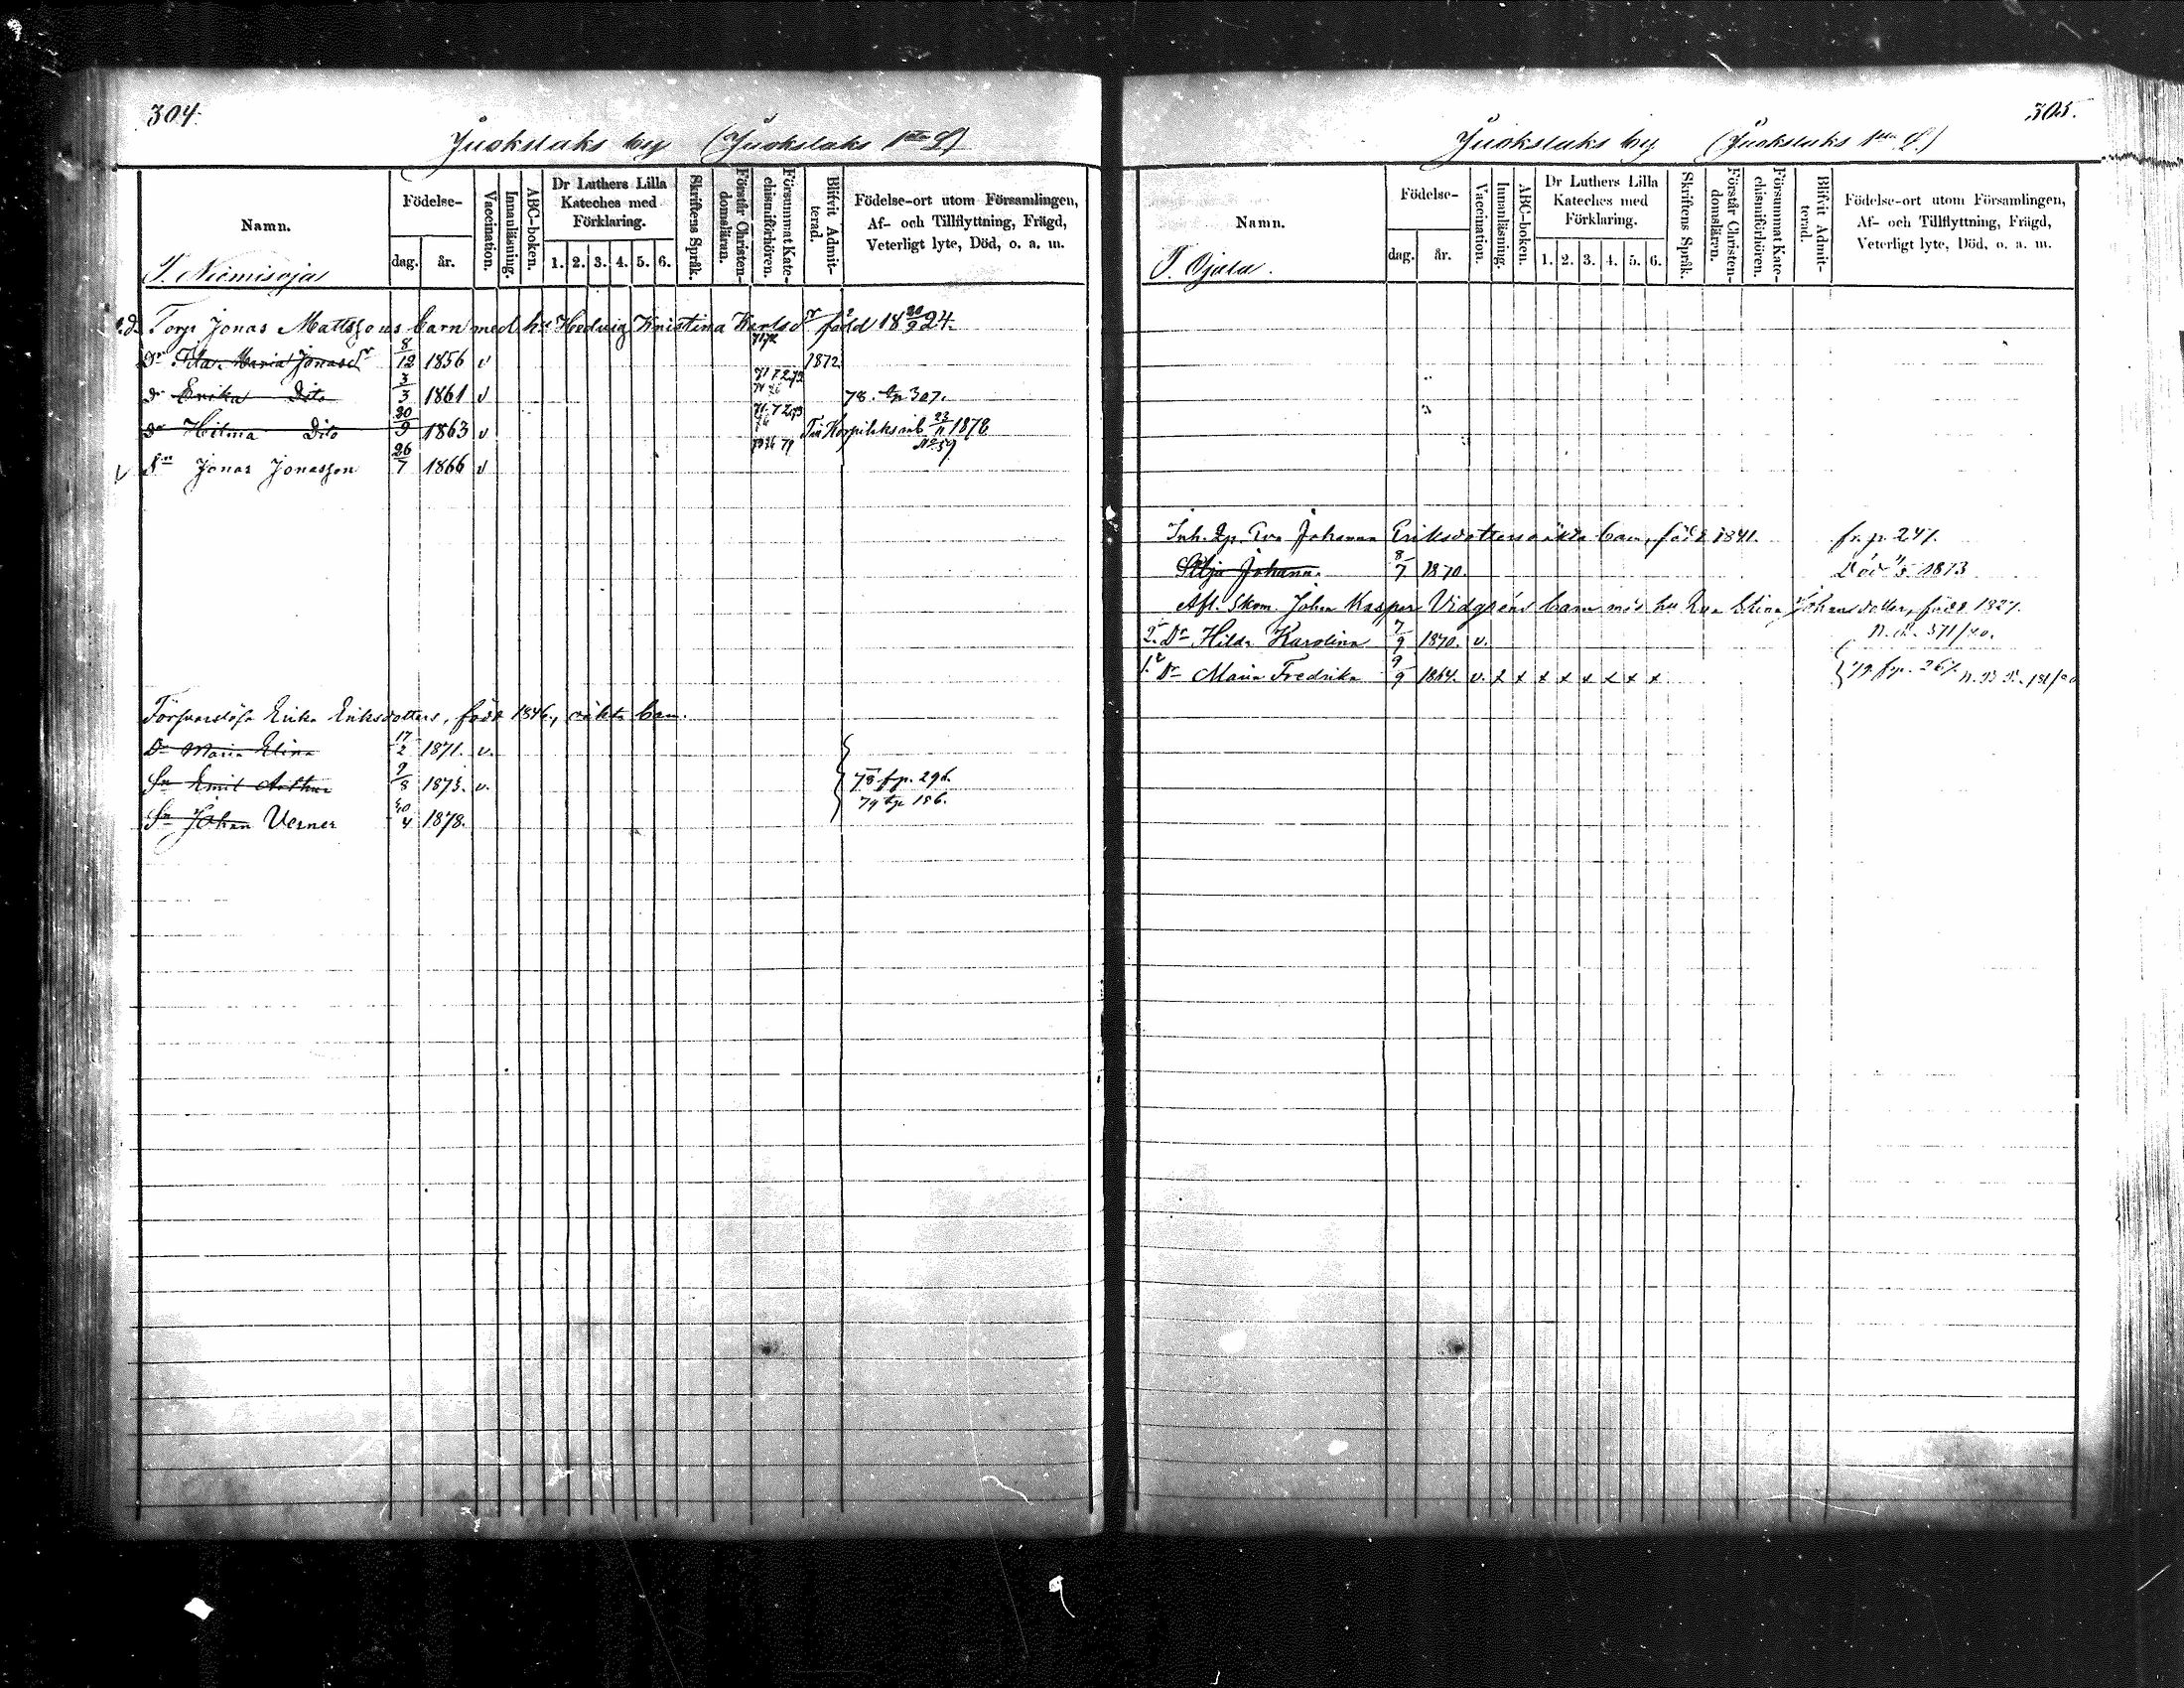 304.
Juokslaks by (Juokslaks 1sta L)
Namn.
Födelse-
dag.
år.
Vaccination.
Innanläsning.
ABC-boken.
Dr Luthers Lilla Kateches med Förklaring.
1. 2. 3. 4. 5. 6.
Skriftens Språk.
Förstår Christen-domsläran.
Försummat Kate-chismiförhören.
Blifvit Admit-terad.
Födelse-ort utom Församlingen,
Af- och Tillflyttning, Frägd,
Veterligt lyte, Död, o. a. m.
T. Niemisoja
Torp. Jonas Mattssons barn med hu Hedvig Kristina Karlsdr född 18 20/9 24.
Dr Maria Jonasdr 8/12 1856 v 1872
dr Erika Dito 3/3 1861 v 71 72 73 78. tp 307.
dr Hilma Dito 20/9 1863 v 71 72 73 1878
No 59
v Sn Jonas Jonasson 26/7 1866 v
Försvarslösa Erika Eriksdotters, född 1846, oäkta barn.
Dr Maria Elina 17/2 1871. v.
Sn Emil Arthur 9/8 1875. v. 78 fr p. 296.
79 tp 186.
Sn Johan Verner 30/4 1878.
305.
Juokslaks by (Juokslaks 1sta L)
Namn.
Födelse-
dag.
år.
Vaccination.
Innanläsning.
ABC-boken.
Dr Luthers Lilla Kateches med Förklaring.
1. 2. 3. 4. 5. 6.
Skriftens Språk.
Förstår Christen-domsläran.
Försummat Kate-chismiförhören.
Blifvit Admit-terad.
Födelse-ort utom Församlingen,
Af- och Tillflyttning, Frägd,
Veterligt lyte, Död, o. a. m.
T. Ojala.
Inh. Eva Johanna Eriksdotters oäkta barn, född 1841. fr. p. 247.
Silja Johanna. 8/7 1870. Död 1873
Afl. Skom. Johan Kasper Vidgréns barn med hu Eva Elina Johansdotter, född 1827.
2. Dr Hilda Karolina 7/9 1870. v.
1. Dr Maria Fredrika 9/9 1864. v. x x x x x x x x 79. fr p. 267.